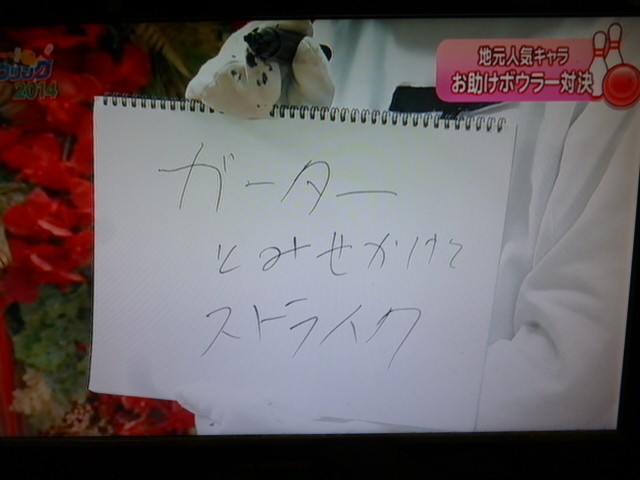 2014
地元人気キャラ
お助けボウラー対決
ガーター
とみせかけて
ストライク